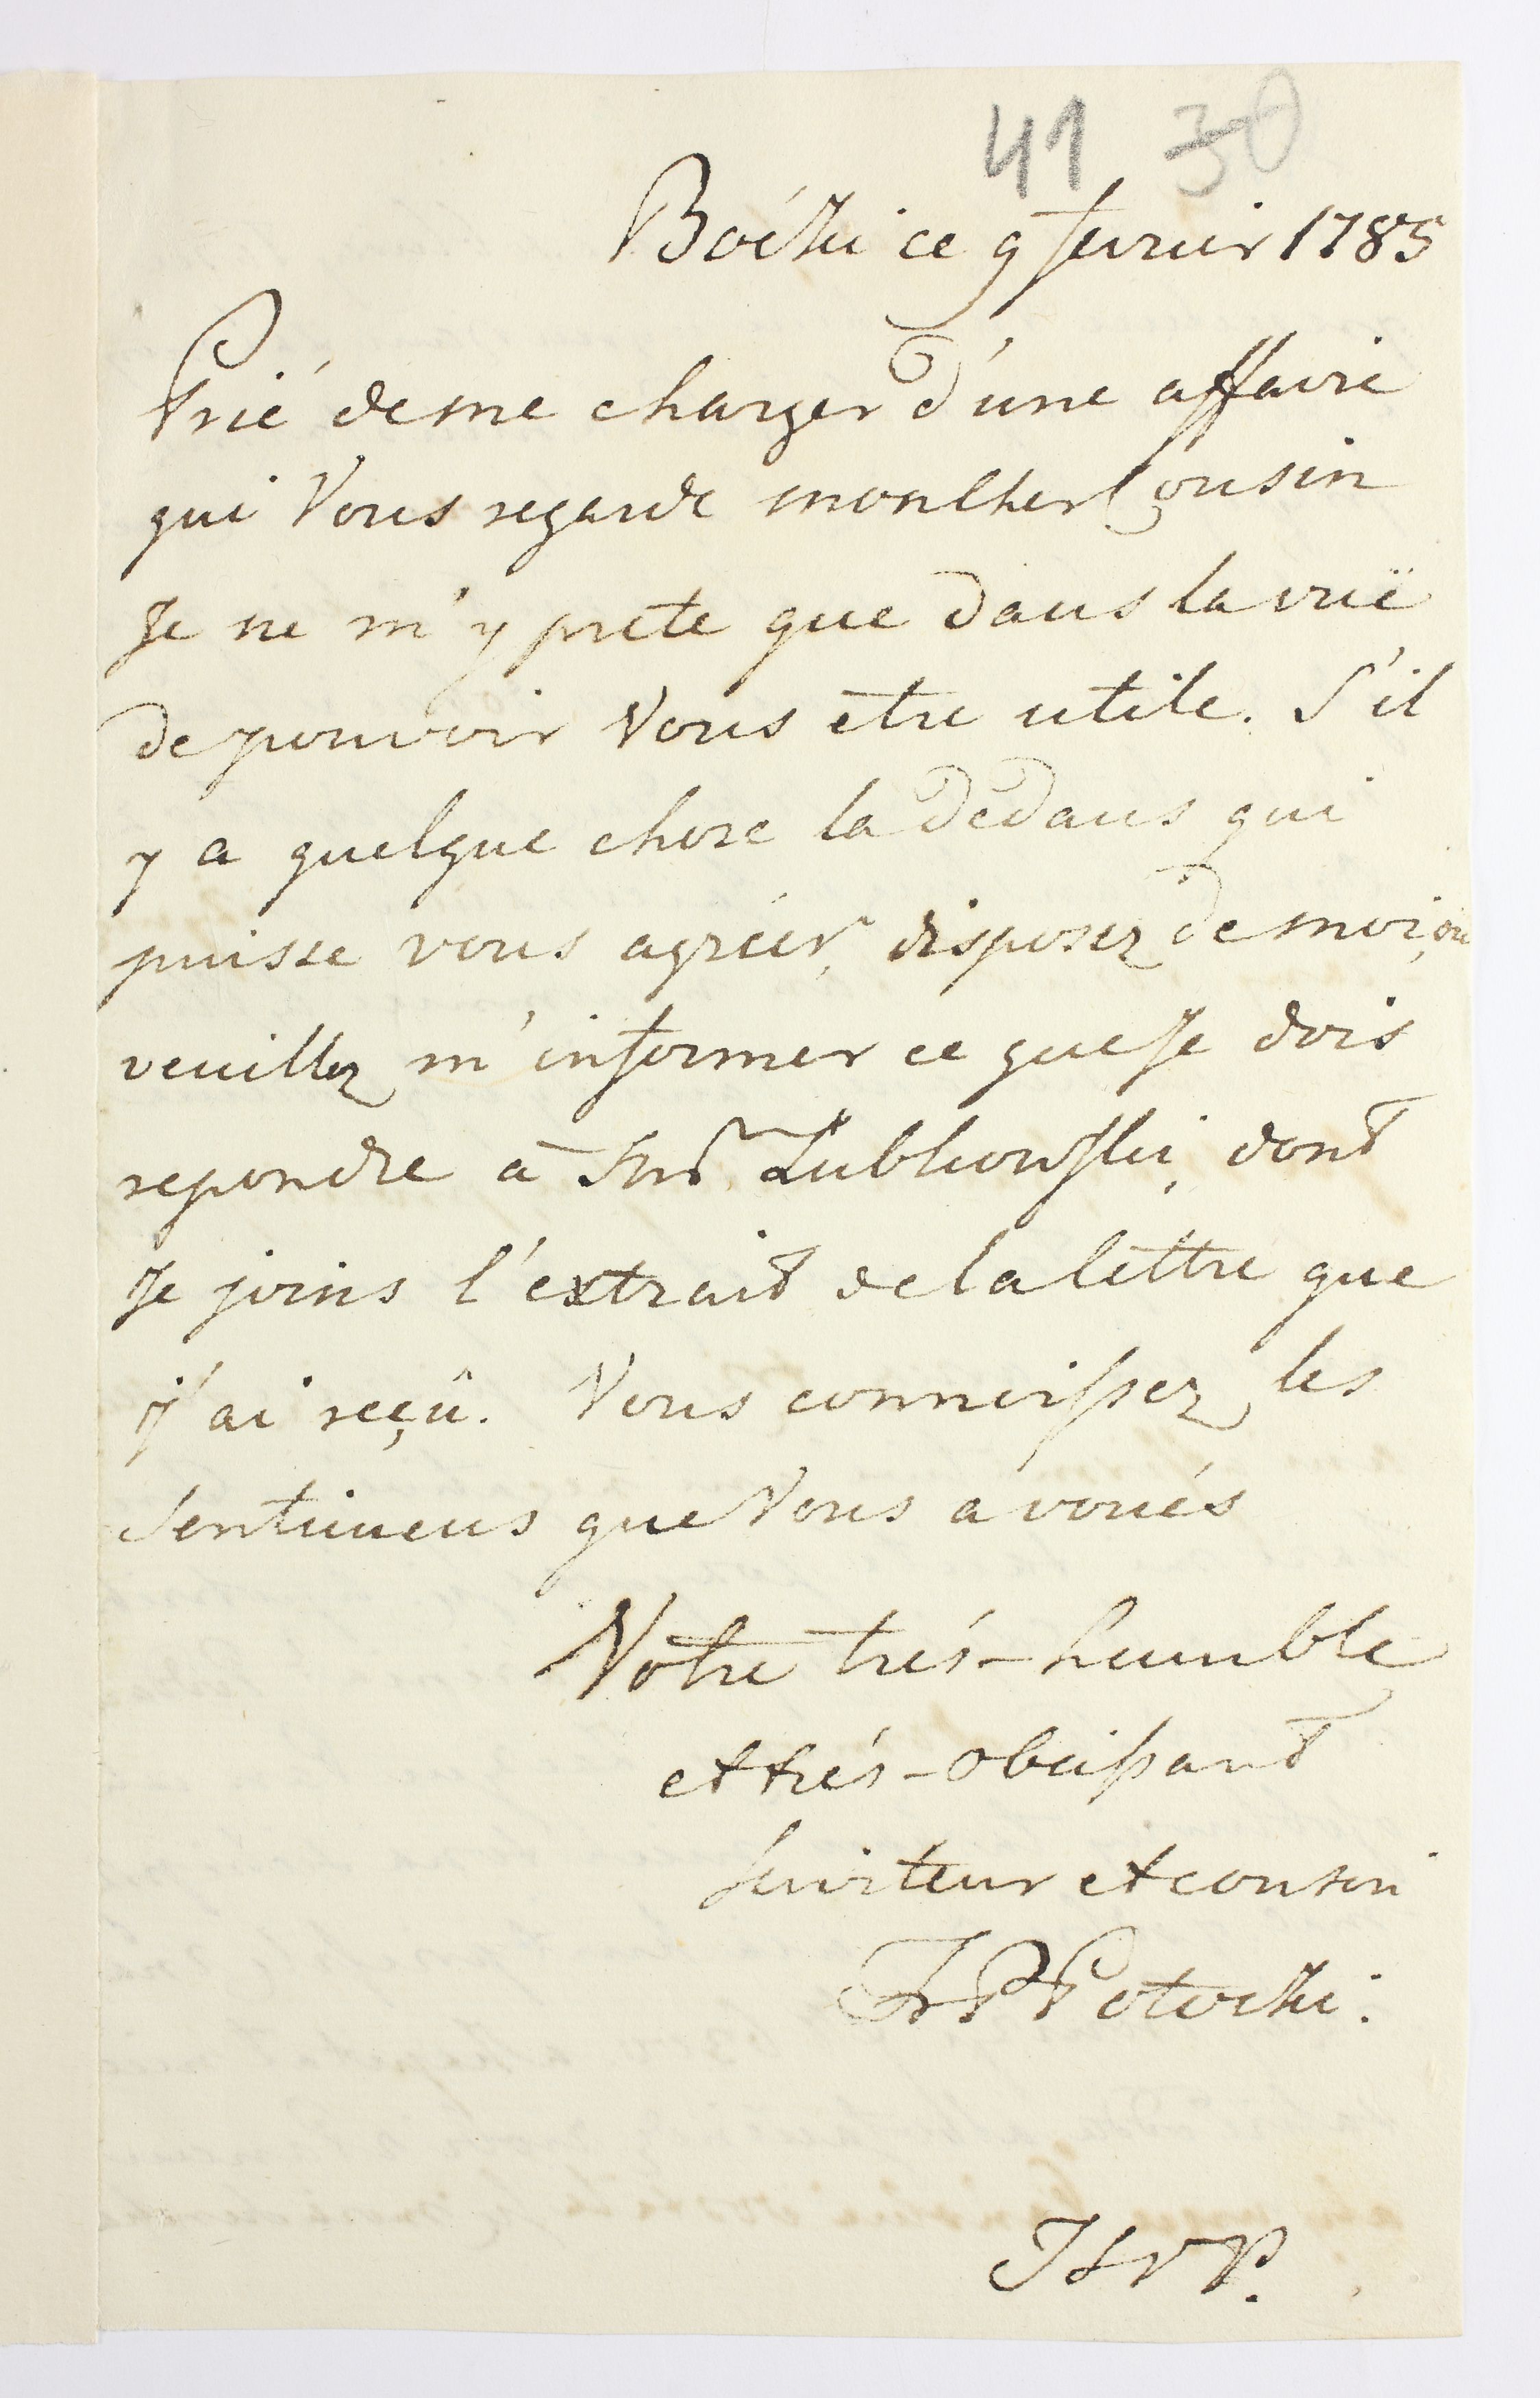 41 30
Boćki ce 9 fevrier 1785
Prié de me charger d'une affaire
qui Vous regarde mon Cher Cousin
Je ne m'y prete que dans la vuë
de pouvoir Vous etre utile. S'il
y a quelque chose la dedans qui
puisse vous agréer, disposez de moi, ou
veuillez m'informer ce que Je dois
repondre à Lubkowski, dont
Je joins l'extrait de la lettre que
j'ai reçû. Vous connoissez les
Sentimens que Vous a voués
Votre trés-humble
et trés-obeissant
Serviteur et cousin
Potocki.
TSVP.